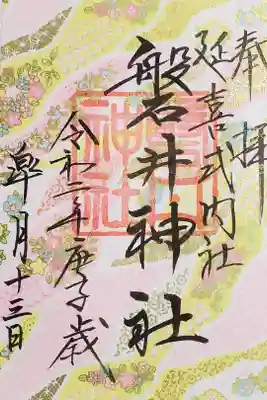 奉拝
延喜式内社
磐井神社
令和二年庚子歳
皐月十三日